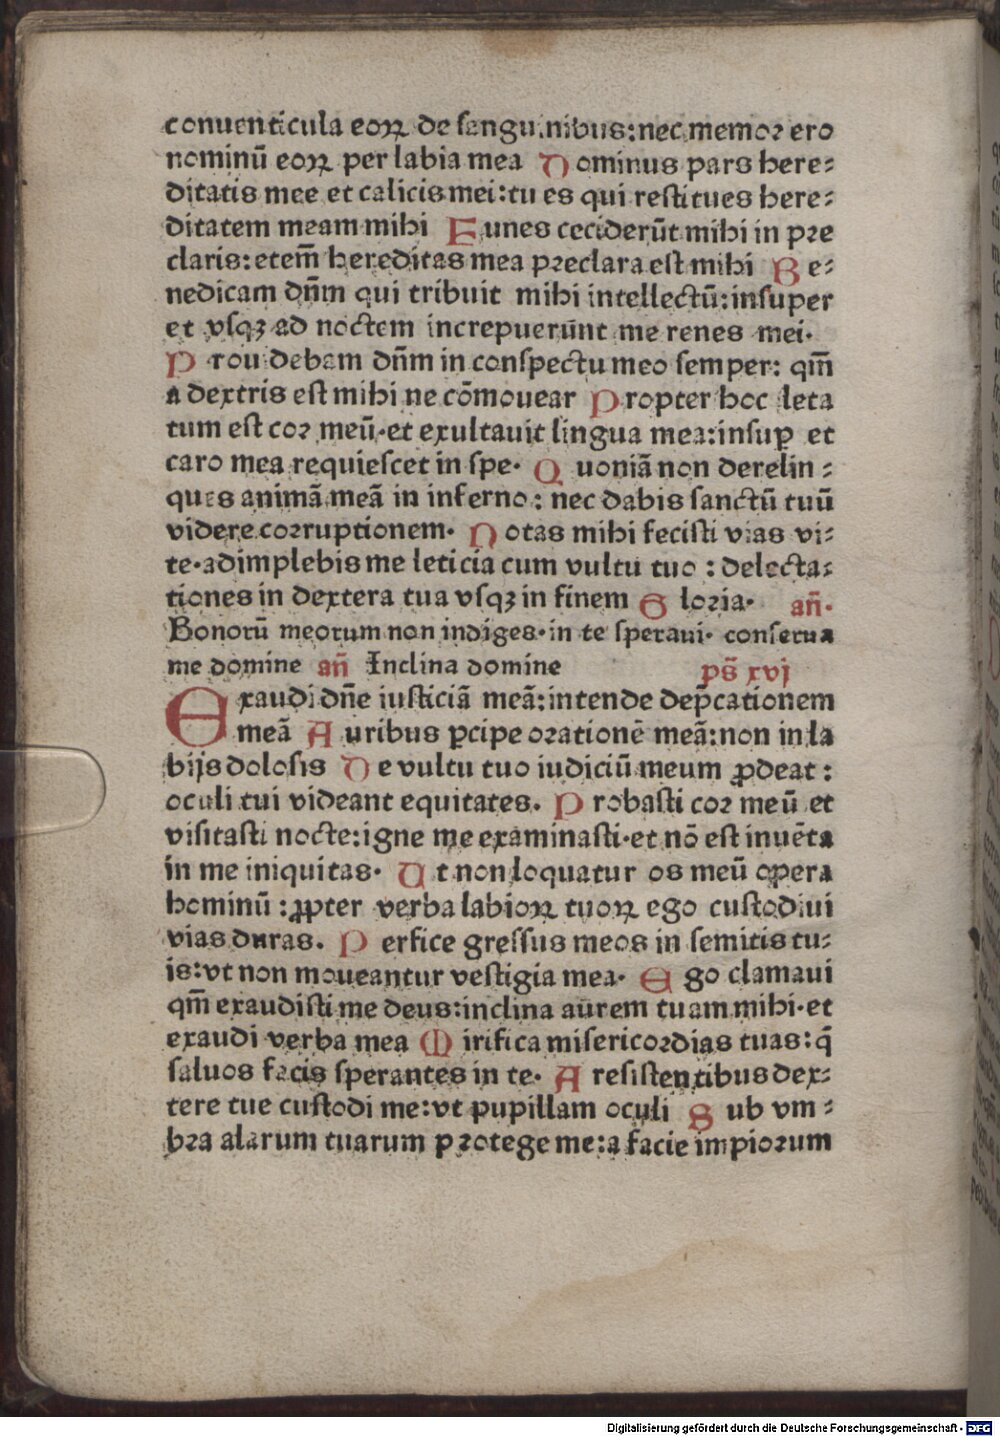 conuenticula eoꝝ de sanguinibus: nec memor ero
nominū eoꝝ per labia mea Dominus pars here⸗
ditatis mee et calicis mei: tu es qui restitues here⸗
ditatem meam mihi Funes ceciderūt mihi in pre
claris: etem̄ hereditas mea preclara est mihi Be⸗
nedicam dn̄m qui tribuit mihi intellectū: insuper
et vsqꝫ ad noctem increpuerūnt me renes mei.
Prouidebam dn̄m in conspectu meo semper: qm̄
a dextris est mihi ne cōmouear Propter hoc leta
tum est cor meū·et exultauit lingua mea: insuꝑ et
caro mea requiescet in spe· Quoniā non derelin⸗
ques animā meā in inferno: nec dabis sanctū tuū
videre corruptionem· Notas mihi fecisti vias vi⸗
te·adimplebis me leticia cum vultu tuo: delecta⸗
tiones in dextera tua vsqꝫ in finem Gloria· an̄·
Bonorū meorum non indiges·in te speraui· conserua
me domine an̄ Inclina domine ps̄ xvj
Exaudi dn̄e iusticiā meā: intende dep̄cationem
meā Auribus ꝑcipe orationē meā: non in la
bijs dolosis De vultu tuo iudiciū meum ꝓdeat:
oculi tui videant equitates. Probasti cor meū et
visitasti nocte: igne me examinasti·et nō est inuēta
in me iniquitas· Ut non loquatur os meū opera
hominū: ꝓpter verba labioꝝ tuoꝝ ego custodiui
vias duras. Perfice gressus meos in semitis tu⸗
is: vt non moueantur vestigia mea· Ego clamaui
qm̄ exaudisti me deus: inclina aurem tuam mihi·et
exaudi verba mea Mirifica misericordias tuas: q̄
saluos facis sperantes in te· A resistentibus dex⸗
tere tue custodi me: vt pupillam oculi Sub vm⸗
bra alarum tuarum protege me: a facie impiorum
Digitalisierung gefördert durch die Deutsche Forschungsgemeinschaft - DFG